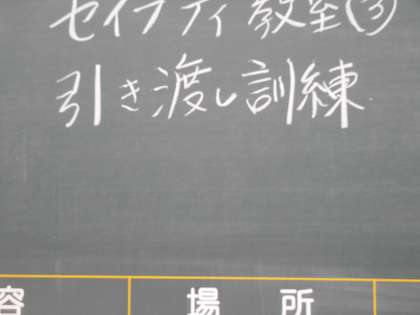 セイフティ教室(3)
引き渡し訓練
容 場所